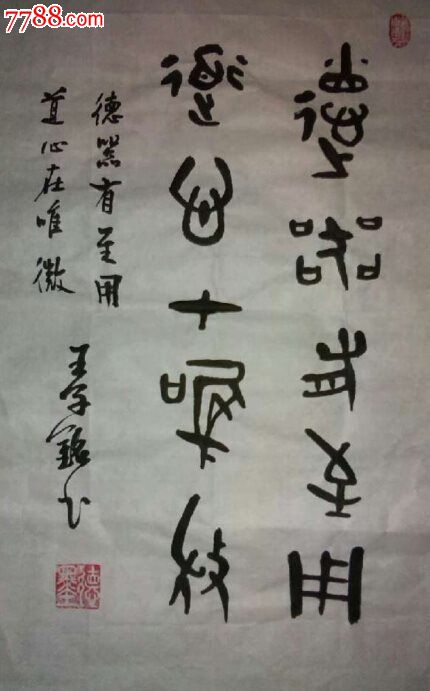 7788.com
德器有至用
道心在唯微
德器有至用
道心在唯微